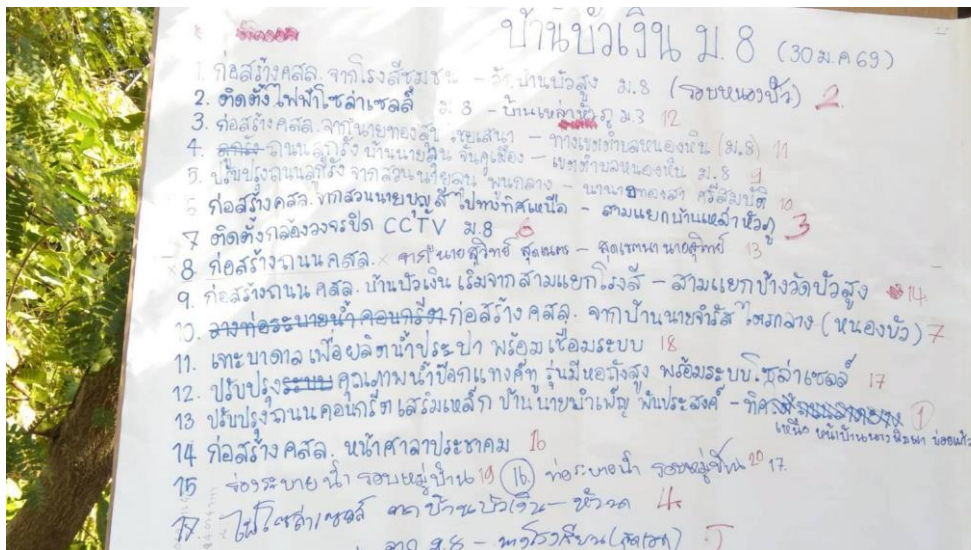 บ้านบัวเงิน ม.8 (30 ม.ค 69)
1. ก่อสร้าง คสล. จากโรงสีชุมชน - วัดบ้านบัวสูง ม.8 (รอบหนองบัว) 2
2. ติดตั้งไฟฟ้าโซล่าเซลล์ ม.8 - บ้านเหล่าหัวภู ม.3 12
3. ก่อสร้าง คสล. จากนายทองสุข ไชยเสนา - ทางเขตตำบลหนองหิน (ม.8) 11
4. ถนนลูกรัง บ้านนายลุน จันคูเมือง - เขตตำบลหนองหิน ม.8 9
5. ปรับปรุงถนนลูกรัง จากสวนนายลุน พันกลาง - นานายทองสา ศรีสมบัติ 10
6 ก่อสร้าง คสล. จากสวนนายบุญสี ไปทางทิศเหนือ - สามแยกบ้านเหล่าหัวภู 3
7 ติดตั้งกล้องวงจรปิด CCTV ม.8 6
8. ก่อสร้างถนน คสล. จากนายสุวิทย์ - สุดเขตนานายสุวิทย์ 13
9. ก่อสร้างถนน คสล. บ้านบัวเงิน เริ่มจากสามแยกโรงสี - สามแยกข้างวัดบัวสูง 14
10. วางท่อระบายน้ำคอนกรีต ก่อสร้าง คสล. จากบ้านนายจำรัส ไตรกลาง (หนองบัว) 7
11. เจาะบาดาลเพื่อผลิตน้ำประปา พร้อมเชื่อมระบบ 18
12. ปรับปรุงระบบ คุณภาพน้ำป๊อกแทงค์ทู รุ่นมีหอถังสูง พร้อมระบบโซล่าเซลล์ 17
13 ปรับปรุงถนนคอนกรีตเสริมเหล็ก บ้านนายนำเพ็ญ พันประสงค์ - ทิศ 1
เหนือ หน้าบ้านนาง
14 ก่อสร้าง คสล. หน้าศาลาประชาคม 16
15 ร่องระบายน้ำ รอบหมู่บ้าน 19 (16) ท่อระบายน้ำ รอบหมู่บ้าน 20 17.
ไฟโซล่าเซลล์ จากบ้านบัวเงิน - 4
จาก ม.8 - ทางโรงเรียน 5